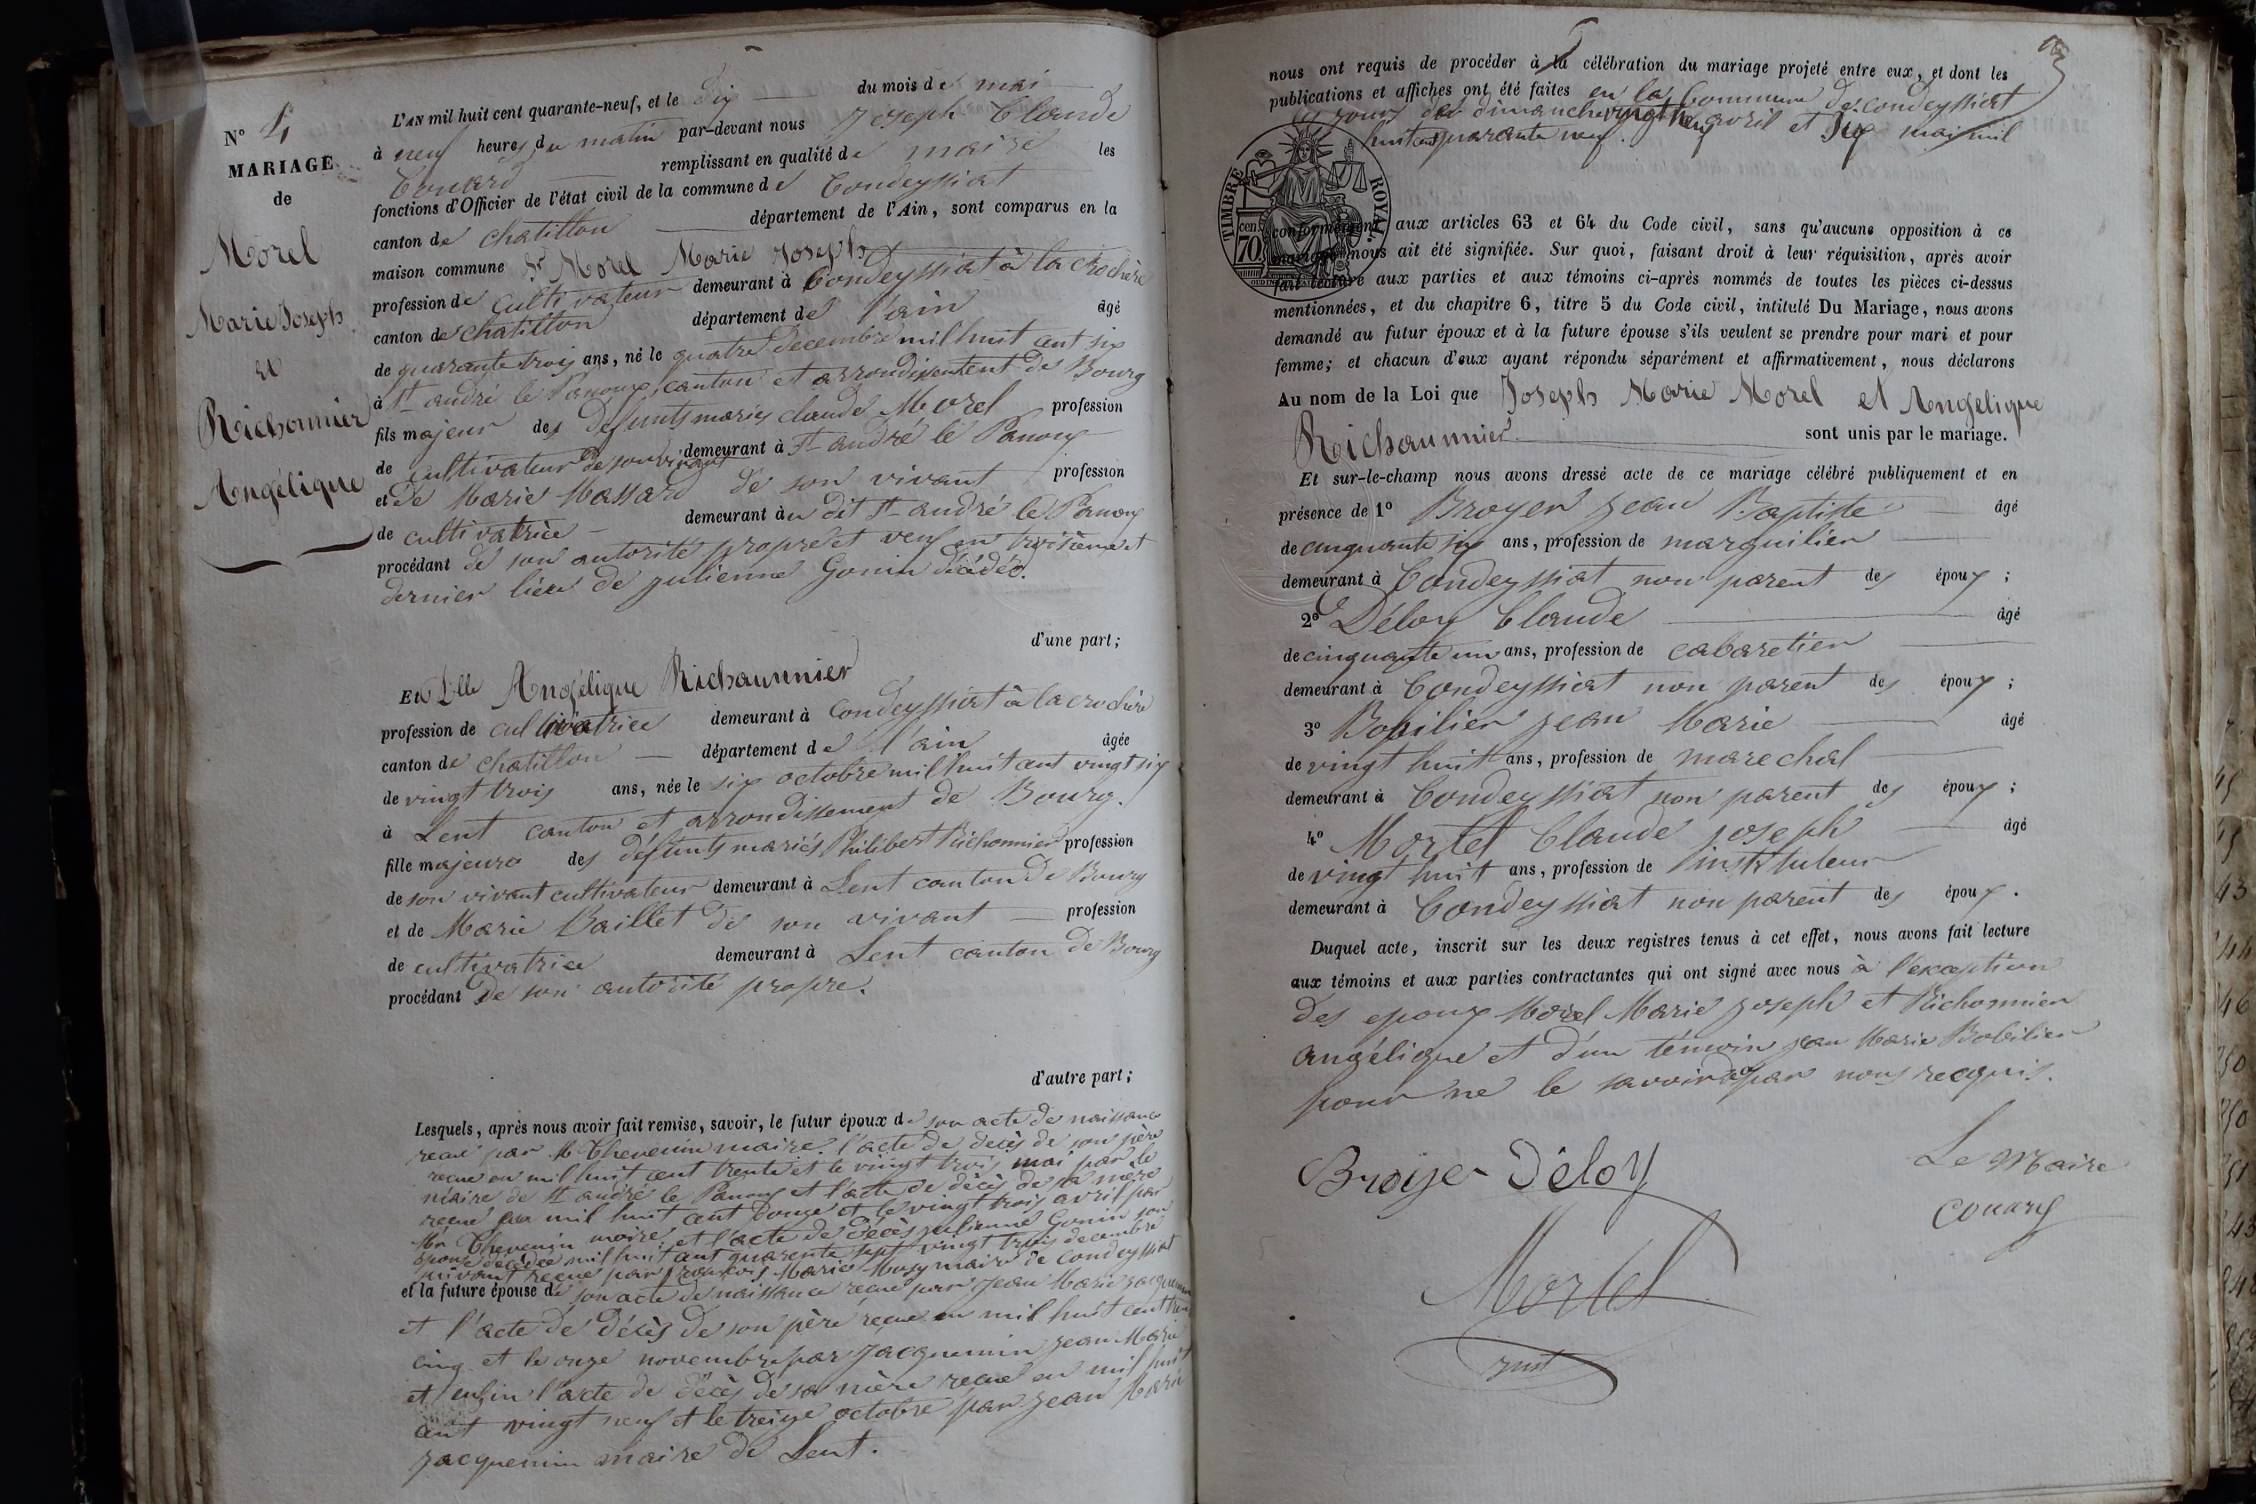 N° 4
MARIAGE
de
Morel
Marie Joseph
et
Richonnier
Angélique
L'AN mil huit cent quarante-neuf, et le dix du mois de mai
à neuf heures du matin par-devant nous Joseph Claude
Couard remplissant en qualité de maire les
fonctions d'Officier de l'état civil de la commune de Condeyssiat
canton de chatillon département de l'Ain, sont comparus en la
maison commune Sr Morel Marie Joseph
profession de cultivateur demeurant à Condeyssiat à la crochère
canton de chatillon département de l'ain âgé
de quarante trois ans, né le quatre decembre mil huit cent six
à St andré le Panoux canton et arrondissement de Bourg
fils majeur des defunts mariés claude Morel profession
de cultivateur de son vivant demeurant à St andré le Panoux
et de Marie Massard de son vivant profession
de cultivatrice demeurant au dit St andré le Panoux
procédant de son autorité propre et veuf en troisième et
dernier lieu de julienne Gonin décédée.
d'une part;
Et Dlle Angélique Richaunnier
profession de cultivatrice demeurant à condeyssiat à la crochère
canton de chatillon département de l'ain âgée
de vingt trois ans, née le six octobre mil huit cent vingt six
à Lent canton et arrondissement de Bourg.
fille majeure des défunts mariés Philibert Richonnier profession
de son vivant cultivateur demeurant à Lent canton de Bourg
et de Marie Baillet de son vivant profession
de cultivatrice demeurant à Lent canton de Bourg
procédant de son autorité propre.
d'autre part;
Lesquels, après nous avoir fait remise, savoir, le futur époux de son acte de naissance
recue par M Chevenin maire. l'acte de decès de son père
recue en mil huit cent trente et le vingt trois mai par le
maire de St andré le Panoux et l'acte de décès de sa mère
reçue en mil huit cent douze et le vingt trois avril par
Mr Chevenin maire et l'acte de décès julienne Gonin son
épouse décédée mil huit cent quarante sept vingt trois decembre
suivant recue par francois Marie maire de condeyssiat
et la future épouse de son acte de naissance recue par Jean Marie jacquemin
et l'acte de décès de son père reçue en mil huit cent trente
cinq et le onze novembre par Jacquemin jean Marie
et enfin l'acte de décès de sa mère recue en mil huit
cent vingt neuf et le treize octobre par jean Marie
jacquemin maire de Lent.
nous ont requis de procéder à la célébration du mariage projeté entre eux, et dont les
publications et affiches ont été faites en la Commune de condeyssiat
les jours des dimanche vingt neuf avril et six mai mil
huit cent quarante neuf.
TIMBRE ROYAL
70 cen
conformément aux articles 63 et 64 du Code civil, sans qu'aucune opposition à ce
mariage nous ait été signifiée. Sur quoi, faisant droit à leur réquisition, après avoir
fait lecture aux parties et aux témoins ci-après nommés de toutes les pièces ci-dessus
mentionnées, et du chapitre 6, titre 5 du Code civil, intitulé Du Mariage, nous avons
demandé au futur époux et à la future épouse s'ils veulent se prendre pour mari et pour
femme; et chacun d'eux ayant répondu séparément et affirmativement, nous déclarons
Au nom de la Loi que Joseph Marie Morel et Angélique
Richaunnier sont unis par le mariage.
Et sur-le-champ nous avons dressé acte de ce mariage célébré publiquement et en
présence de 1° Broyer Jean Baptiste âgé
de cinquante six ans, profession de marguilier
demeurant à Condeyssiat non parent des époux;
2° Déloy Claude âgé
de cinquante un ans, profession de cabaretier
demeurant à Condeyssiat non parent des époux;
3° Bobilier jean Marie âgé
de vingt huit ans, profession de marechal
demeurant à Condeyssiat non parent des époux;
4° Mortel Claude joseph âgé
de vingt huit ans, profession de instituteur
demeurant à Condeyssiat non parent des époux.
Duquel acte, inscrit sur les deux registres tenus à cet effet, nous avons fait lecture
aux témoins et aux parties contractantes qui ont signé avec nous à l'exception
des epoux Morel Marie joseph et Richonnier
angélique et d'un témoin jean Marie Bobilier
pour ne le savoir par nous recquis.
Broyer Déloy
Le Maire
couard
Mortel
inst